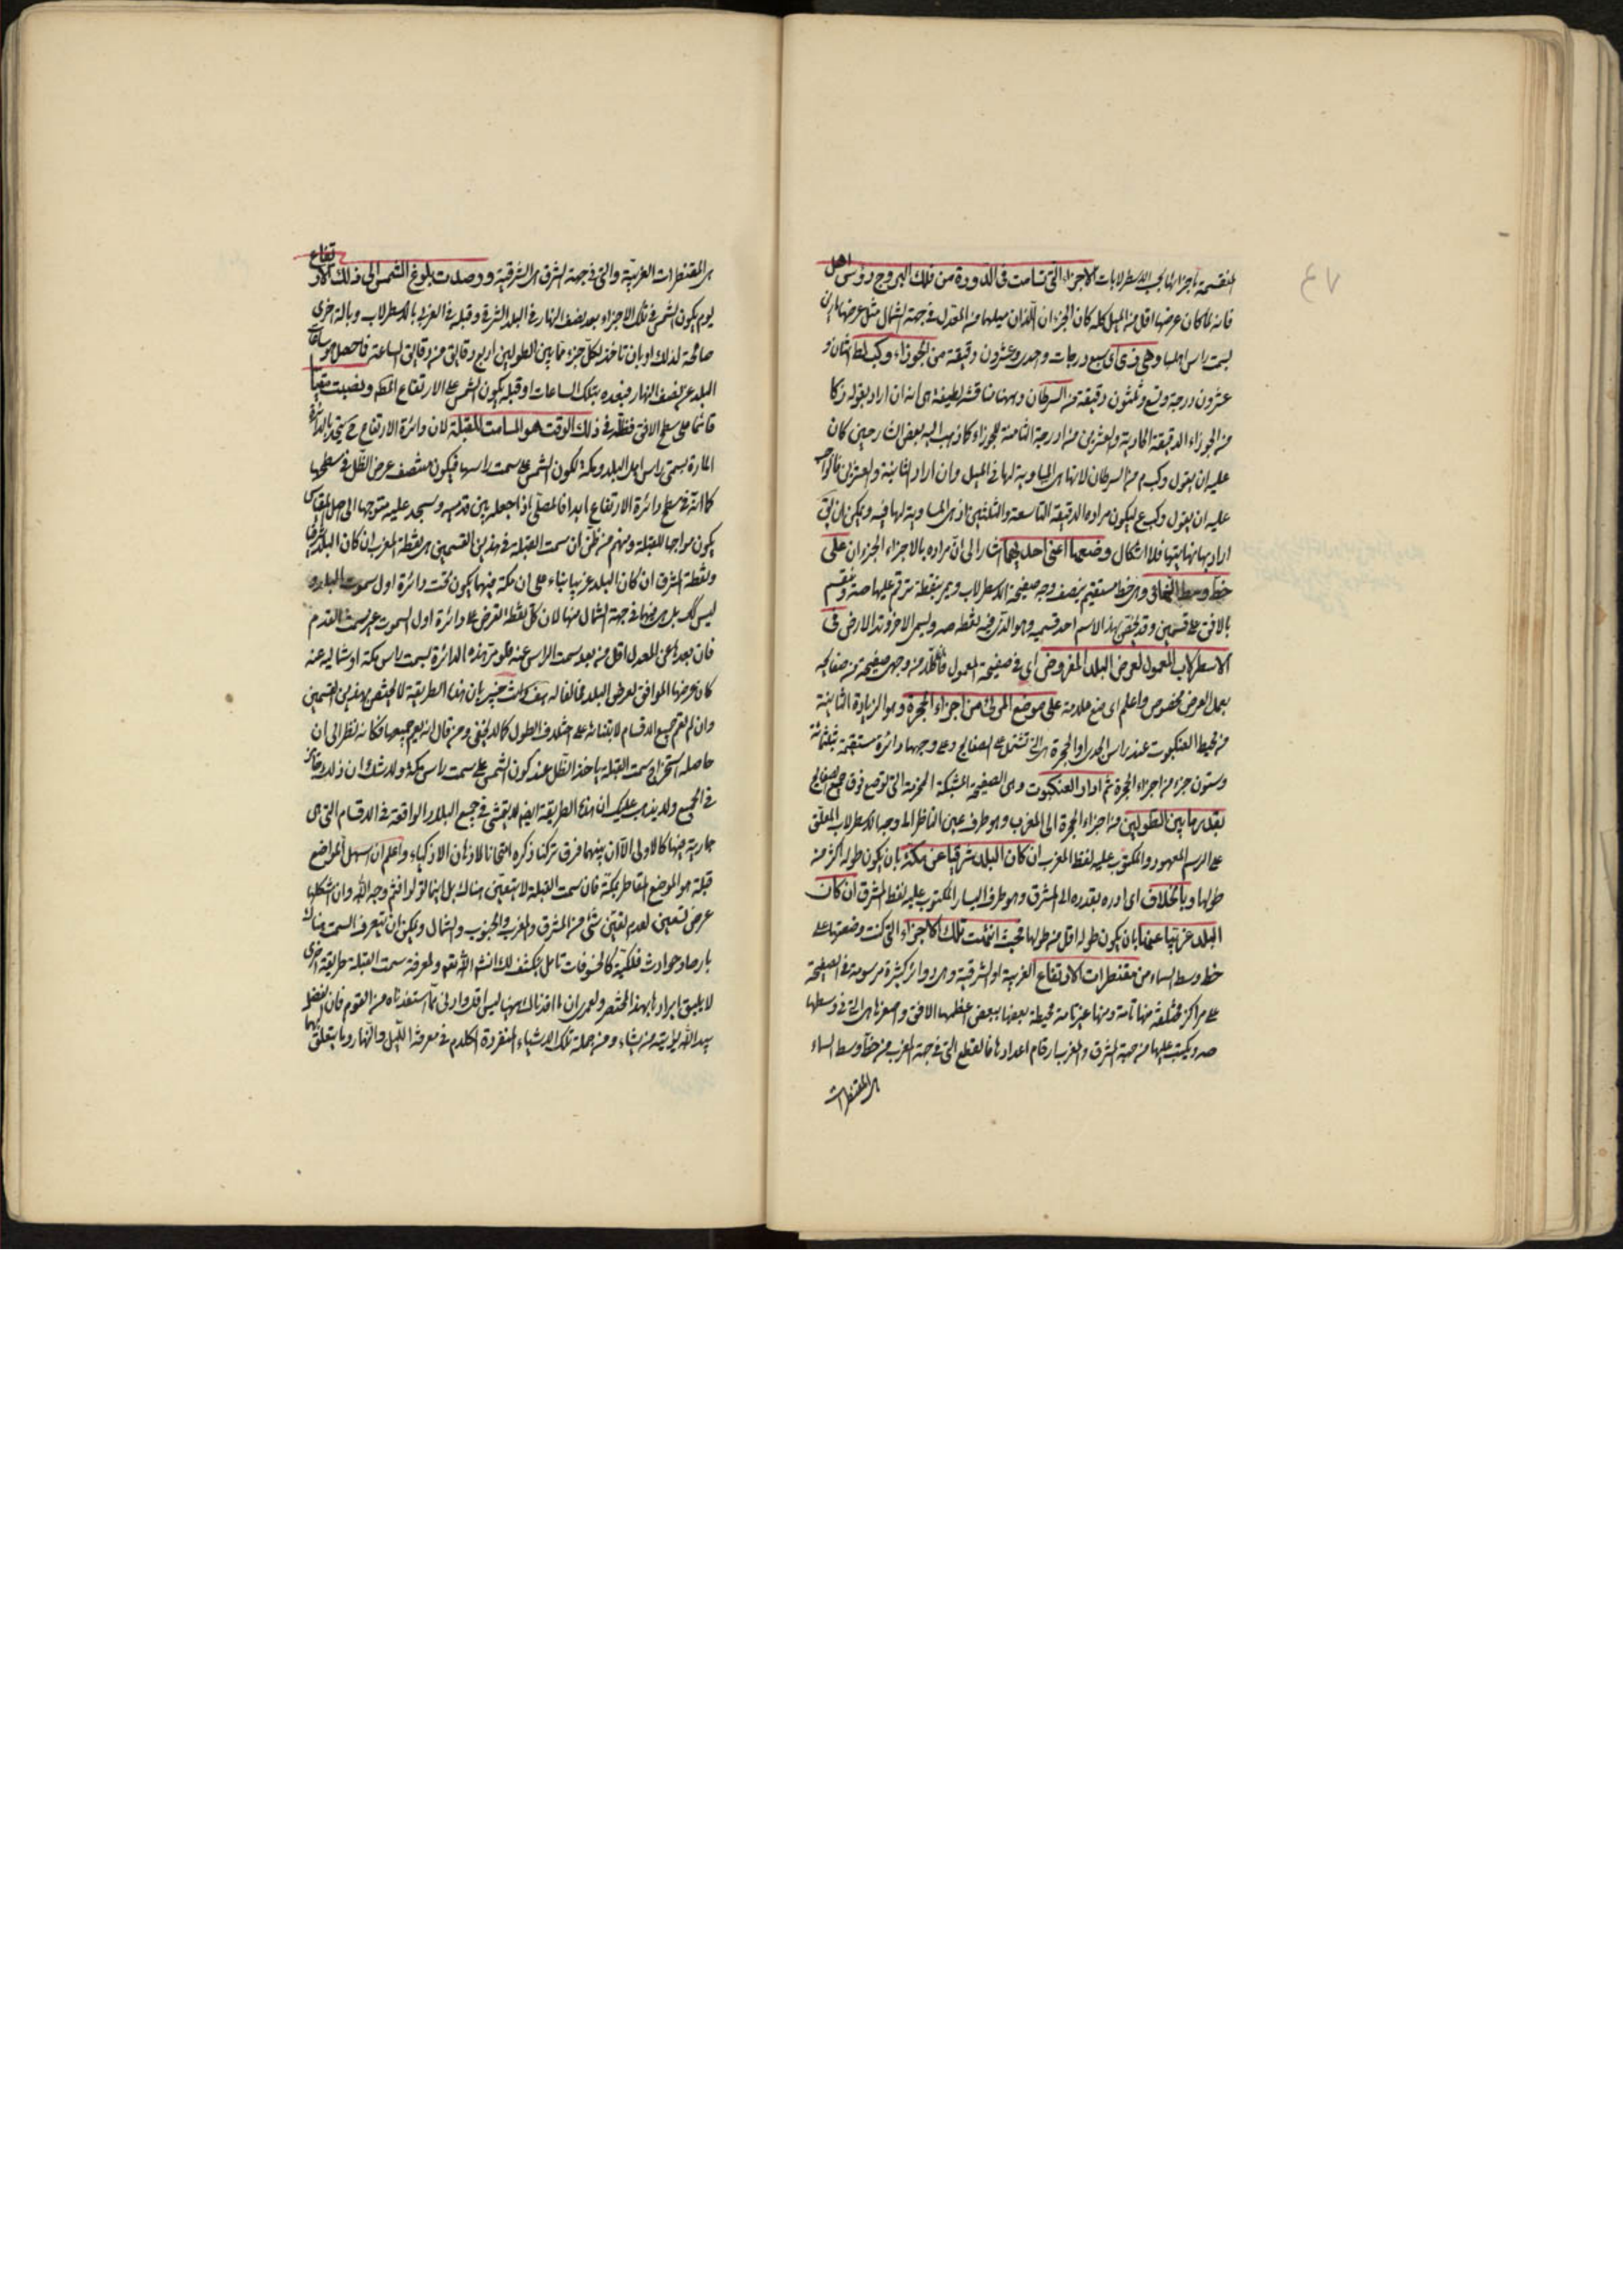 المنقسمة باجزائها الاسطرلابات الاجزاء التي تسامت في الدورة من فلك البروج رؤس اهل
فانه لما كان عرضها اقل من الميل كله كان الجزءان اللذان ميلهما من المعدل في جهة الشمال مثل عرضها
بسمت راس اهلها وهي زكا اى سبع درجات واحدى وعشرون دقيقة من الجوزاء وكب لط اثنان و
عشرون درجة وتسع وثلثون دقيقة من السرطان وههنا مناقشة لطيفة هى انه ان اراد بقوله زكا
من الجوزاء الدقيقة الحادية والعشرين من الدرجة الثامنة للجوزاء كما ذهب اليه بعض الشارحين كان
عليه ان يقول وكب م من السرطان لانها هى المساوية لها في الميل وان اراد الثانية والعشرين
عليه ان يقول وكب ع ليكون مراده الدقيقة التاسعة والثلثين اذ هى المساوية لها فيه ويمكن ان
اراد بها نهايتها فلا اشكال وضعها اعنى احديهما اشار الى ان مراده بالاجزاء الجزءان على
خط وسط السماء وهى خط مستقيم ينصف وجه صفيحة الاسطرلاب ويمر بنقطة ترقم عليها صه وينقسم
بالافق على قسمين وقد يختص بهذا الاسم احد قسميه وهو الذى فيه نقطة صه ويسمى الاخر وتد الارض فى
الاسطرلاب المعمول لعرض البلد المفروض اى فى صفيحة المعمول من وجهى صفيحة من صفايحه
يعمل لعرض مخصوص واعلم اى ضع علامة على موضع المرى من اجزاء الحجرة وهو الزيادة الثابتة
من محيط العنكبوت عند راس الجدى والحجرة هى التى تشتمل على الصفايح وعلى وجهها دائرة منقسمة بثلثمائة
وستون جزء من اجزاء الحجرة ثم ادار العنكبوت وهى الصفيحة المشبكة المخرمة التى توضع فوق جميع الصفايح
بقدر ما بين الطولين من اجزاء الحجرة الى المغرب وهو طرف يمين الناظر الى وجه الاسطرلاب المعلق
على الرسم المعهود والمكتوب عليه لفظ المغرب ان كان البلد شرقيا عن مكة بان يكون طوله اكثر من
طولها وبالخلاف اى ادره بقدره الى المشرق وهو طرف اليسار المكتوب عليه لفظ المشرق ان كان
البلد غربيا عنها بان يكون طوله اقل من طولها فحيث انتهت تلك الاجزاء التى كنت وضعتها على
خط وسط السماء من مقنطرات الارتفاع الغربية او الشرقية وهى دوائر كثيرة مرسومة فى الصفيحة
على مراكز مختلفة منها تامة ومنها غير تامة محيطة بعضها ببعض اعظمها الافق واصغرها هى التى فى وسطها
صه ويكتب عليها من جهة المشرق والمغرب ارقام اعدادها فالقطع التى فى جهة المغرب من خط وسط السماء
هى المقنطرات
هى المقنطرات الغربية والتى فى جهة الشرق هى الشرقية ورصدت بلوغ الشمس الى ذلك الارتفاع
يوم يكون الشمس فى تلك الاجزاء بعد نصف النهار فى البلد الشرقى وقبله فى الغربى بالاسطرلاب وبالة اخرى
صالحة لذلك او بان تاخذ لكل جزء مما بين الطولين اربع دقايق من دقايق الساعة فما حصل
البلد عن نصف النهار فبعده بتلك الساعات او قبله يكون الشمس على الارتفاع ونصبت مقياسا
قائما على سطح الافق فظله فى ذلك الوقت هو المسامت للقبلة لان دائرة الارتفاع ح يتحد بالدائرة
المارة بسمتى راس اهل البلد ومكة لكون الشمس على سمت راسها فيكون منتصف عرض الظل فى سطحها
كما انه فى سطح دائرة الارتفاع ابدا فالمصلى اذا جعله بين قدميه وسجد عليه متوجها الى اصل المقياس
يكون مواجها للقبلة ومنهم من ظن ان سمت القبلة فى هذين القسمين هى نقطة المغرب ان كان البلد شرقيا
ونقطة المشرق ان كان البلد غربيا بناء على ان مكة فيهما يكون تحت دائرة اول سموت البلد و
ليس كك بل هى فى جهة الشمال منها لان كل نقطة تفرض على دائرة اول السموت غير سمت القدم
فان بعدها عن المعدل اقل من بعد سمت الراس عنه فلو مر هذه الدائرة بسمت راس مكة او شماليه عنه
كان عرضها الموافق لعرض البلد مخالفا له هف بان هذه الطريقة لا تختص بهذين القسمين
وان لم تعم جميع الاقسام لابتنائه على اختلاف الطول كما لا يخفى ومن قال انه يعم جميعها فكانه نظر الى ان
حاصله استخراج سمت القبلة باخذ الظل عند كون الشمس على سمت راس مكة ولا شك ان ذلك جائز
فى الجميع ولا يذهب عليك ان هذه الطريقة ايضا لا يتمشى فى جميع البلاد الواقعة فى الاقسام التى هى
جارية فيها كالاولى الا ان بينهما فرق تركنا ذكره امتحانا لاذهان الاذكياء واعلم ان اسهل المواضع
قبلة هو الموضع المقاطر بمكة فان سمت القبلة لا يتعين هناك بل اينما تولوا فثم وجه الله وان اشكلها
عرض تسعين لعدم تعين شئ من المشرق والمغرب والجنوب والشمال ويمكن ان يتعرف السمت هناك
بارصاد حوادث فلكية كالخسوفات تامل ينكشف لك انشاء الله تعم ولمعرفة سمت القبلة طريقة اخرى
لا يليق ايرادها بهذا المختصر ولعمرى ان ما افدناك ههنا ليس اقل وادنى مما استفدناه من القوم فان الفضل
بيد الله يؤتيه من يشاء ومن جملة تلك الاشياء المنفردة الكلام فى معرفة الليل والنهار وما يتعلق بهما